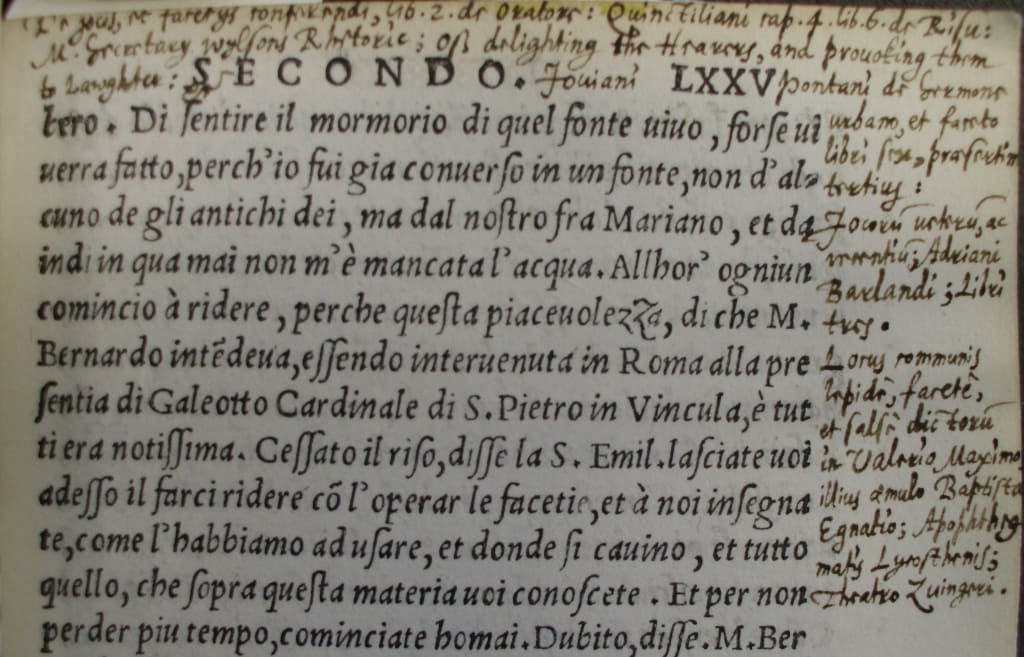 De jocis, et facetijs conferendi, lib. 2. de Oratore: Quinctiliani cap. 4. lib. 6. de Risu:
Mr. Secretary Wylsons Rhetorie; Of delighting the Hearers, and provoking them
to Lawghter: Joviani Pontani de Sermone
urbano, et faceto
libri sex, præsertim
tertius:
SECONDO. LXXV
tero. Di sentire il mormorio di quel fonte uiuo, forse ui
uerra fatto, perch'io fui gia conuerso in un fonte, non d'al-
cuno de gli antichi dei, ma dal nostro fra Mariano, et da
indi in qua mai non m'è mancata l'acqua. Allhor' ogniun
comincio à ridere, perche questa piaceuolezza, di che M.
Bernardo intēdeua, essendo interuenuta in Roma alla pre
sentia di Galeotto Cardinale di S. Pietro in Vincula, è tut
ti era notissima. Cessato il riso, disse la S. Emil. lasciate uoi
adesso il farci ridere cō l'operar le facetie, et à noi insegna
te, come l'habbiamo ad usare, et donde si cauino, et tutto
quello, che sopra questa materia uoi conoscete. Et per non
perder piu tempo, cominciate homai. Dubito, disse. M. Ber
Jocorū veterū, ac
recentiū; Adriani
Barlandi; Libri
tres.
Locus communis
lepidè, facetè,
et salsè dictorū
in Valerio Maximo,
illius æmulo Baptista
Egnatio; Apophtheg
matis Lycosthenis;
Theatro Zuingeri.